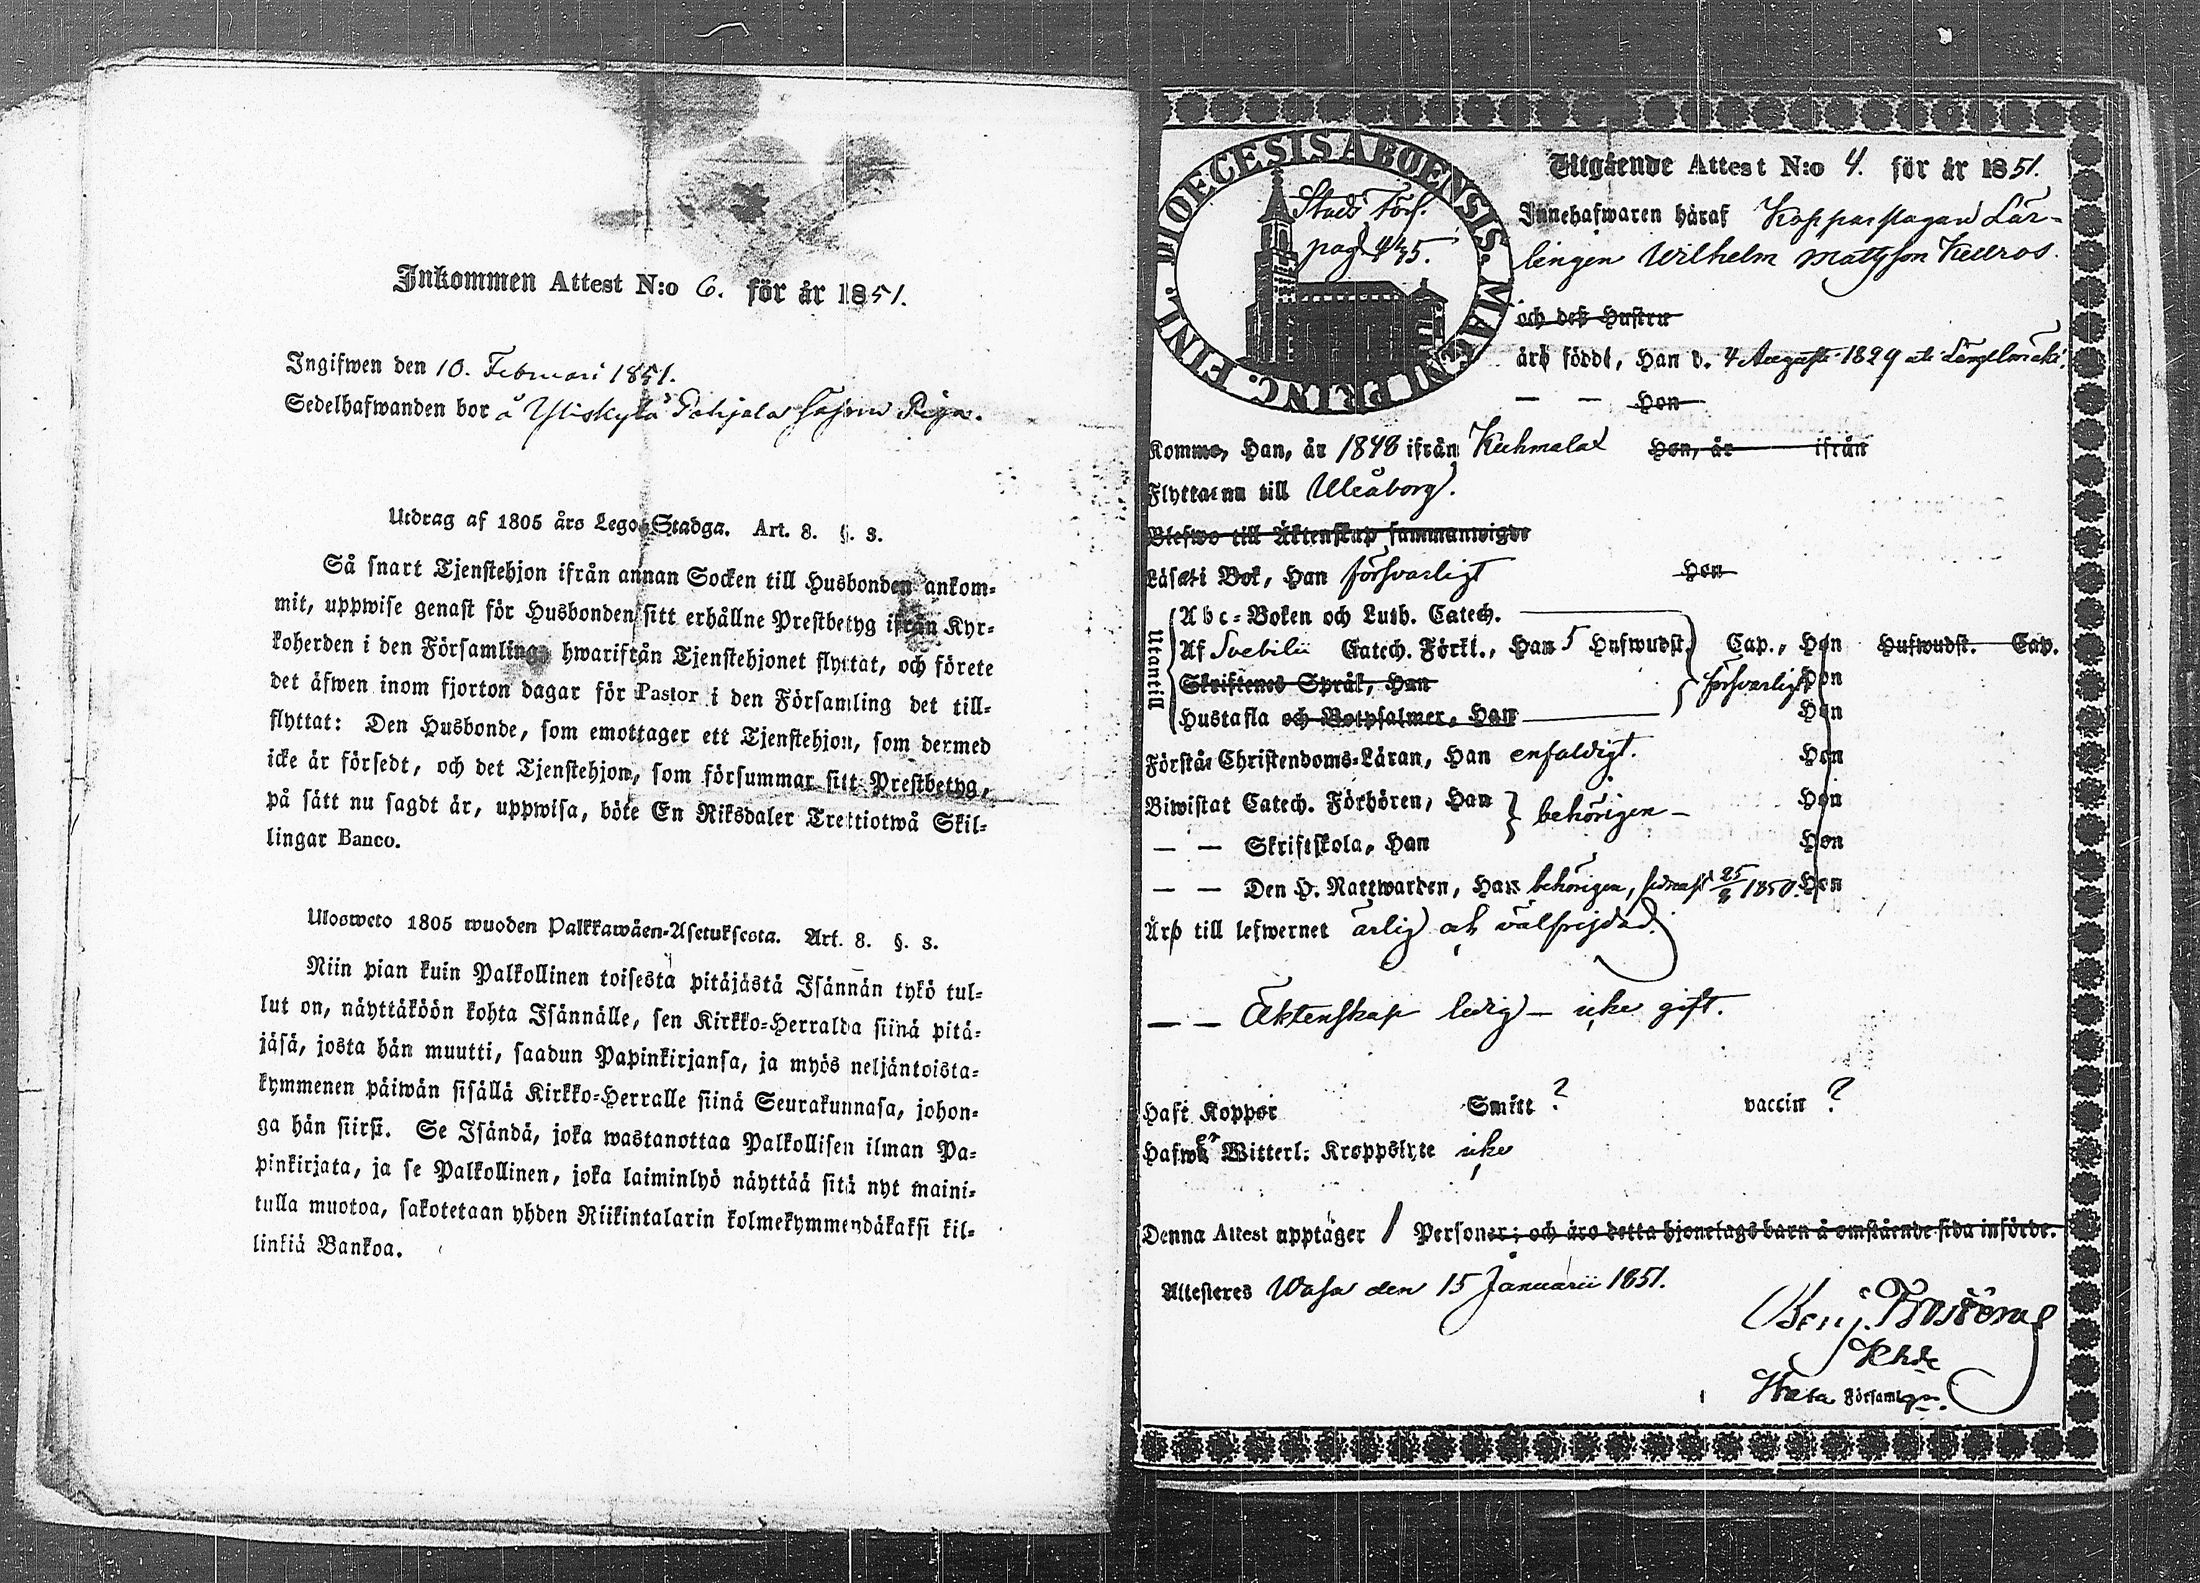 Inkommen Attest N:o 6. för år 1851.
Ingifwen den 10. Februari 1851.
Sedelhafwanden bor å Yliskylä Pohjola
Utdrag af 1805 års Lego-Stadga. Art. 8. §. 3.
Så snart Tjenstehjon ifrån annan Socken till Husbonden ankom-
mit, uppwise genast för Husbonden sitt erhållne Prestbetyg ifrån Kyr-
koherden i den Församling, hwarifrån Tjenstehjonet flyttat, och förete
det äfwen inom fjorton dagar för Pastor i den Församling det till-
flyttat: Den Husbonde, som emottager ett Tjenstehjon, som dermed
icke är försedt, och det Tjenstehjon, som försummar sitt Prestbetyg,
på sätt nu sagdt är, uppwisa, böte En Riksdaler Trettiotwå Skil-
lingar Banco.
Ulosweto 1805 wuoden Palkkawäen-Asetuksesta. Art. 8. §. 3.
Niin pian kuin Palkollinen toisesta pitäjästä Isännän tykö tul-
lut on, näyttäköön kohta Isännälle, sen Kirkko-Herralda siinä pitä-
jäsä, josta hän muutti, saadun Papinkirjansa, ja myös neljäntoista-
kymmenen päiwän sisällä Kirkko-Herralle siinä Seurakunnasa, johon-
ga hän siirsi. Se Isändä, joka wastanottaa Palkollisen ilman Pa-
pinkirjata, ja se Palkollinen, joka laiminlyö näyttää sitä nyt maini-
tulla muotoa, sakotetaan yhden Riikintalarin kolmekymmendäkaksi kil-
linkiä Bankoa.
DIOECESIS ABOENSIS. MAGNI PRINC. FINL.
Stads Förs.
pag. 435.
Utgående Attest N:o 4. för år 1851.
Innehafwaren häraf Kopparslagare Lär-
lingen Wilhelm Mattsson
och deß Hustru
äro född, Han d. 4 Augusti 1829 i Längelmäki.
— — Hon
Kommo, Han, år 1848 ifrån Kuhmalax Hon, år ifrån
Flyttar nu till Uleåborg.
Blefwo till Äktenskap sammanwigde
Läsa i Bok, Han försvarligt Hon
Utantill
Abc-Boken och Luth. Catech.
Af Svebilii Catech. Förkl., Han 5 Hufwudst. Cap., Hon Hufwudst. Cap.
Skriftenes Språk, Han försvarligt Hon
Hustafla och Botpsalmer, Han Hon
Förstår Christendoms-Läran, Han enfaldigt. Hon
Biwistat Catech. Förhören, Han behörigen — Hon
— — Skriftskola, Han Hon
— — Den H. Nattwarden, Han behörigen, sednast 1850. Hon
Äro till lefwernet ärlig och välfrejdad.
— — Äktenskap ledig — icke gift.
Haft Koppor Smitt ? vaccin ?
Hafwa Witterl: Kroppslyte icke
Denna Attest upptager 1 Personer; och äro detta hjonelags barn å omstående sida införde.
Attesteres Wasa den 15 Januarii 1851.
Benj.
Khde
Wasa Församlgn.